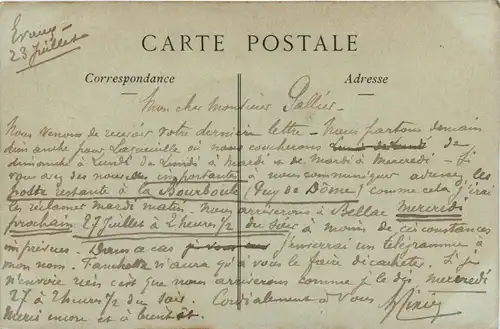 Evaux
23 Juillet
CARTE POSTALE
Correspondance
Adresse
Mon cher Monsieur Pallier -
Nous venons de recevoir votre dernière lettre - Nous partons demain
dimanche pour Laqueuille où nous coucherons de
dimanche à Lundi de Lundi à Mardi et de Mardi à Mercredi - Si
vous avez des nouvelles importantes à nous communiquer adressez les
poste restante à la Bourboule (Puy de Dôme) comme cela j'irai
les réclamer mardi matin. Nous arriverons à Bellac mercredi
prochain 27 Juillet à 2 heures 1/2 du soir à moins de circonstances
imprévues. Dans ce cas j'enverrai un télégramme à
mon nom. Fanchette n'aura qu'à vous le faire décacheter. Si je
n'envoie rien c'est que nous arriverons comme je le dis mercredi
27 à 2 heures 1/2 du soir. Cordialement à vous
Merci encore et à bientôt.